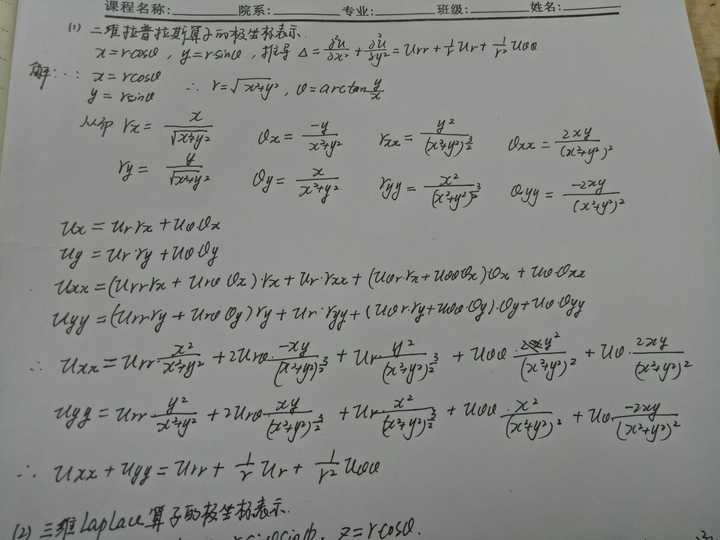 课程名称: 院系: 专业: 班级: 姓名:
(1) 二维拉普拉斯算子的极坐标表示.
x=rcosθ, y=rsinθ, 推导 Δ=∂²u/∂x²+∂²u/∂y²=Urr+1/r Ur+1/r² Uθθ
解: ∵ x=rcosθ
y=rsinθ ∴ r=√(x²+y²), θ=arctan y/x
从而 rx=x/√(x²+y²) θx=-y/(x²+y²) rxx=y²/(x²+y²)^(3/2) θxx=2xy/(x²+y²)²
ry=y/√(x²+y²) θy=x/(x²+y²) ryy=x²/(x²+y²)^(3/2) θyy=-2xy/(x²+y²)²
Ux=Ur rx+Uθ θx
Uy=Ur ry+Uθ θy
Uxx=(Urr rx+Urθ θx)·rx+Ur·rxx+(Uθr·rx+Uθθ θx)θx+Uθ θxx
Uyy=(Urr ry+Urθ θy)ry+Ur·ryy+(Uθr·ry+Uθθ·θy)·θy+Uθ θyy
∴ Uxx=Urr·x²/(x²+y²)+2Urθ·-xy/(x²+y²)^(3/2)+Ur·y²/(x²+y²)^(3/2)+Uθθ·y²/(x²+y²)²+Uθ·2xy/(x²+y²)²
Uyy=Urr·y²/(x²+y²)+2Urθ·xy/(x²+y²)^(3/2)+Ur·x²/(x²+y²)^(3/2)+Uθθ·x²/(x²+y²)²+Uθ·-2xy/(x²+y²)²
∴ Uxx+Uyy=Urr+1/r Ur+1/r² Uθθ
(2) 三维Laplace算子的极坐标表示.
z=rcosθ.